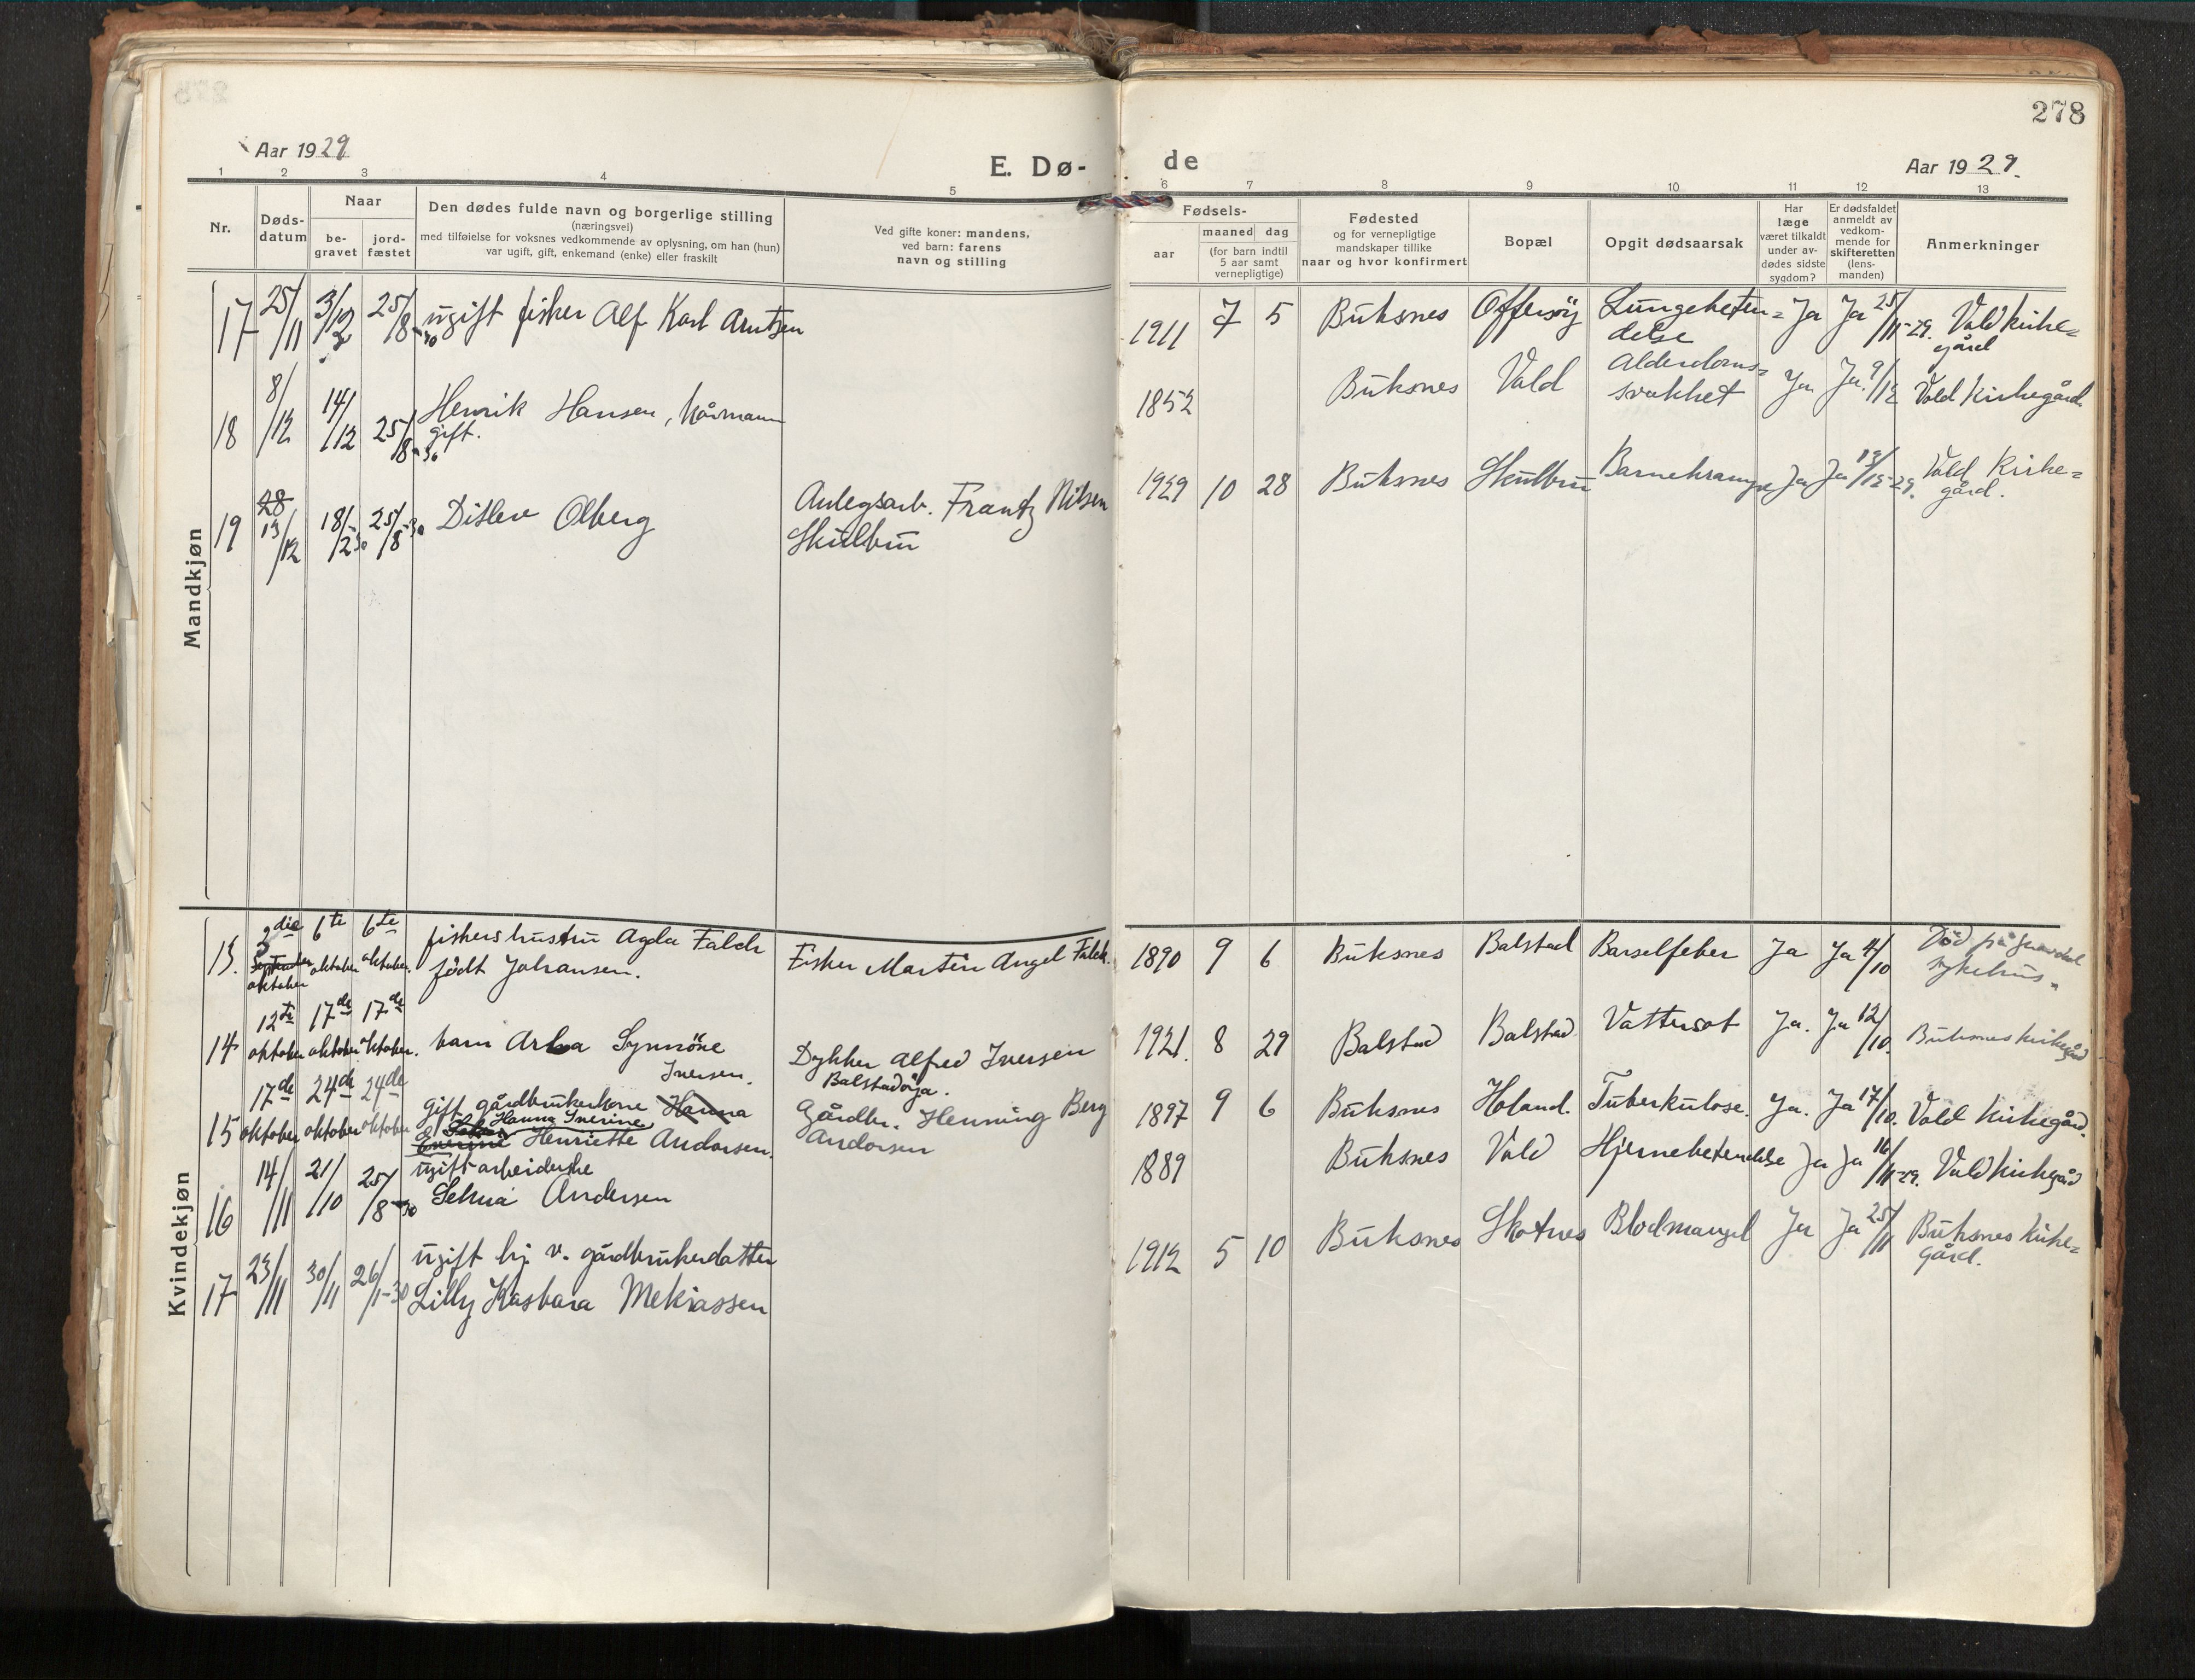 278
Aar 1929
E. Dø-
de
Aar 1929.
1 2 3 4 5
6 7 8 9 10 11 12 13
Nr.
Døds-
datum
Naar
be-
gravet
jord-
fæstet
Den dødes fulde navn og borgerlige stilling
(næringsvei)
med tilføielse for voksnes vedkommende av oplysning, om han (hun)
var ugift, gift, enkemand (enke) eller fraskilt
Ved gifte koner: mandens,
ved barn: farens
navn og stilling
Fødsels-
aar
maaned dag
(for barn indtil
5 aar samt
vernepligtige)
Fødested
og for vernepligtige
mandskaper tillike
naar og hvor konfirmert
Bopæl
Opgit dødsaarsak
Har
læge
været tilkaldt
under av-
dødes sidste
sygdom?
Er dødsfaldet
anmeldt av
vedkom-
mende for
skifteretten
(lens-
manden)
Anmerkninger
Mandkjøn
17 25/11 3/12 25/8-30 ugift fisker Alf Karl Arntzen
1911 7 5 Buksnes Offersöy Lungebeten= Ja Ja 25/11-29. Vald kirke=
delse
gård
18 8/12 14/12 25/8-30 Henrik Hansen, kårmann
gift.
1852 Buksnes Vald Alderdoms= Ja Ja. 9/12 Vold Kirkegård
svakhet
19 28 13/12 18/12 30 25/8-30 Ditlev Olberg
Anlegsarb. Frantz Nilsen
Skulbru
1929 10 28 Buksnes Skulbru Barnekrampe Ja Ja 13/12-29. Vold Kirke=
gård.
Kvindekjøn
13. 3die September oktober 6te oktober 6te oktober. fiskershustru Agda Falch
født Johansen.
Fisker Martin Angel Falch.
1890 9 6 Buksnes Balstad Barselfeber Ja Ja 4/10 Död på Gravdal
sykehus.
14 12te oktober 17de oktober 17de oktober. barn Arna Synnöve
Iversen.
Dykker Alfred Iversen
Balstadöya.
1921. 8 29 Balstad Balstad Vattersot Ja. Ja 12/10. Buksnes kirkegård
15 17de oktober 24de oktober 24de oktober gift gårdbrukerkone Hanna
Hanna Iverine
Henriette Andorsen.
Gårdbr. Henning Berg
Andorsen
1897 9 6 Buksnes Holand. Tuberkulose. Ja. Ja 17/10. Vold Kirkegård.
16 14/11 21/10 25/8-30 ugift arbeiderske
Selma Andersen
1889 Buksnes Vold Hjernebetendelse Ja Ja 16/11-29. Vald kirkegård
17 23/11 30/11 26/1-30 ugift hj. v. gårdbrukerdatter
Lilly Kasbara Mekiassen
1912 5 10 Buksnes Skotnes Blodmangel Ja Ja 25/11 Buksnes kirke=
gård.